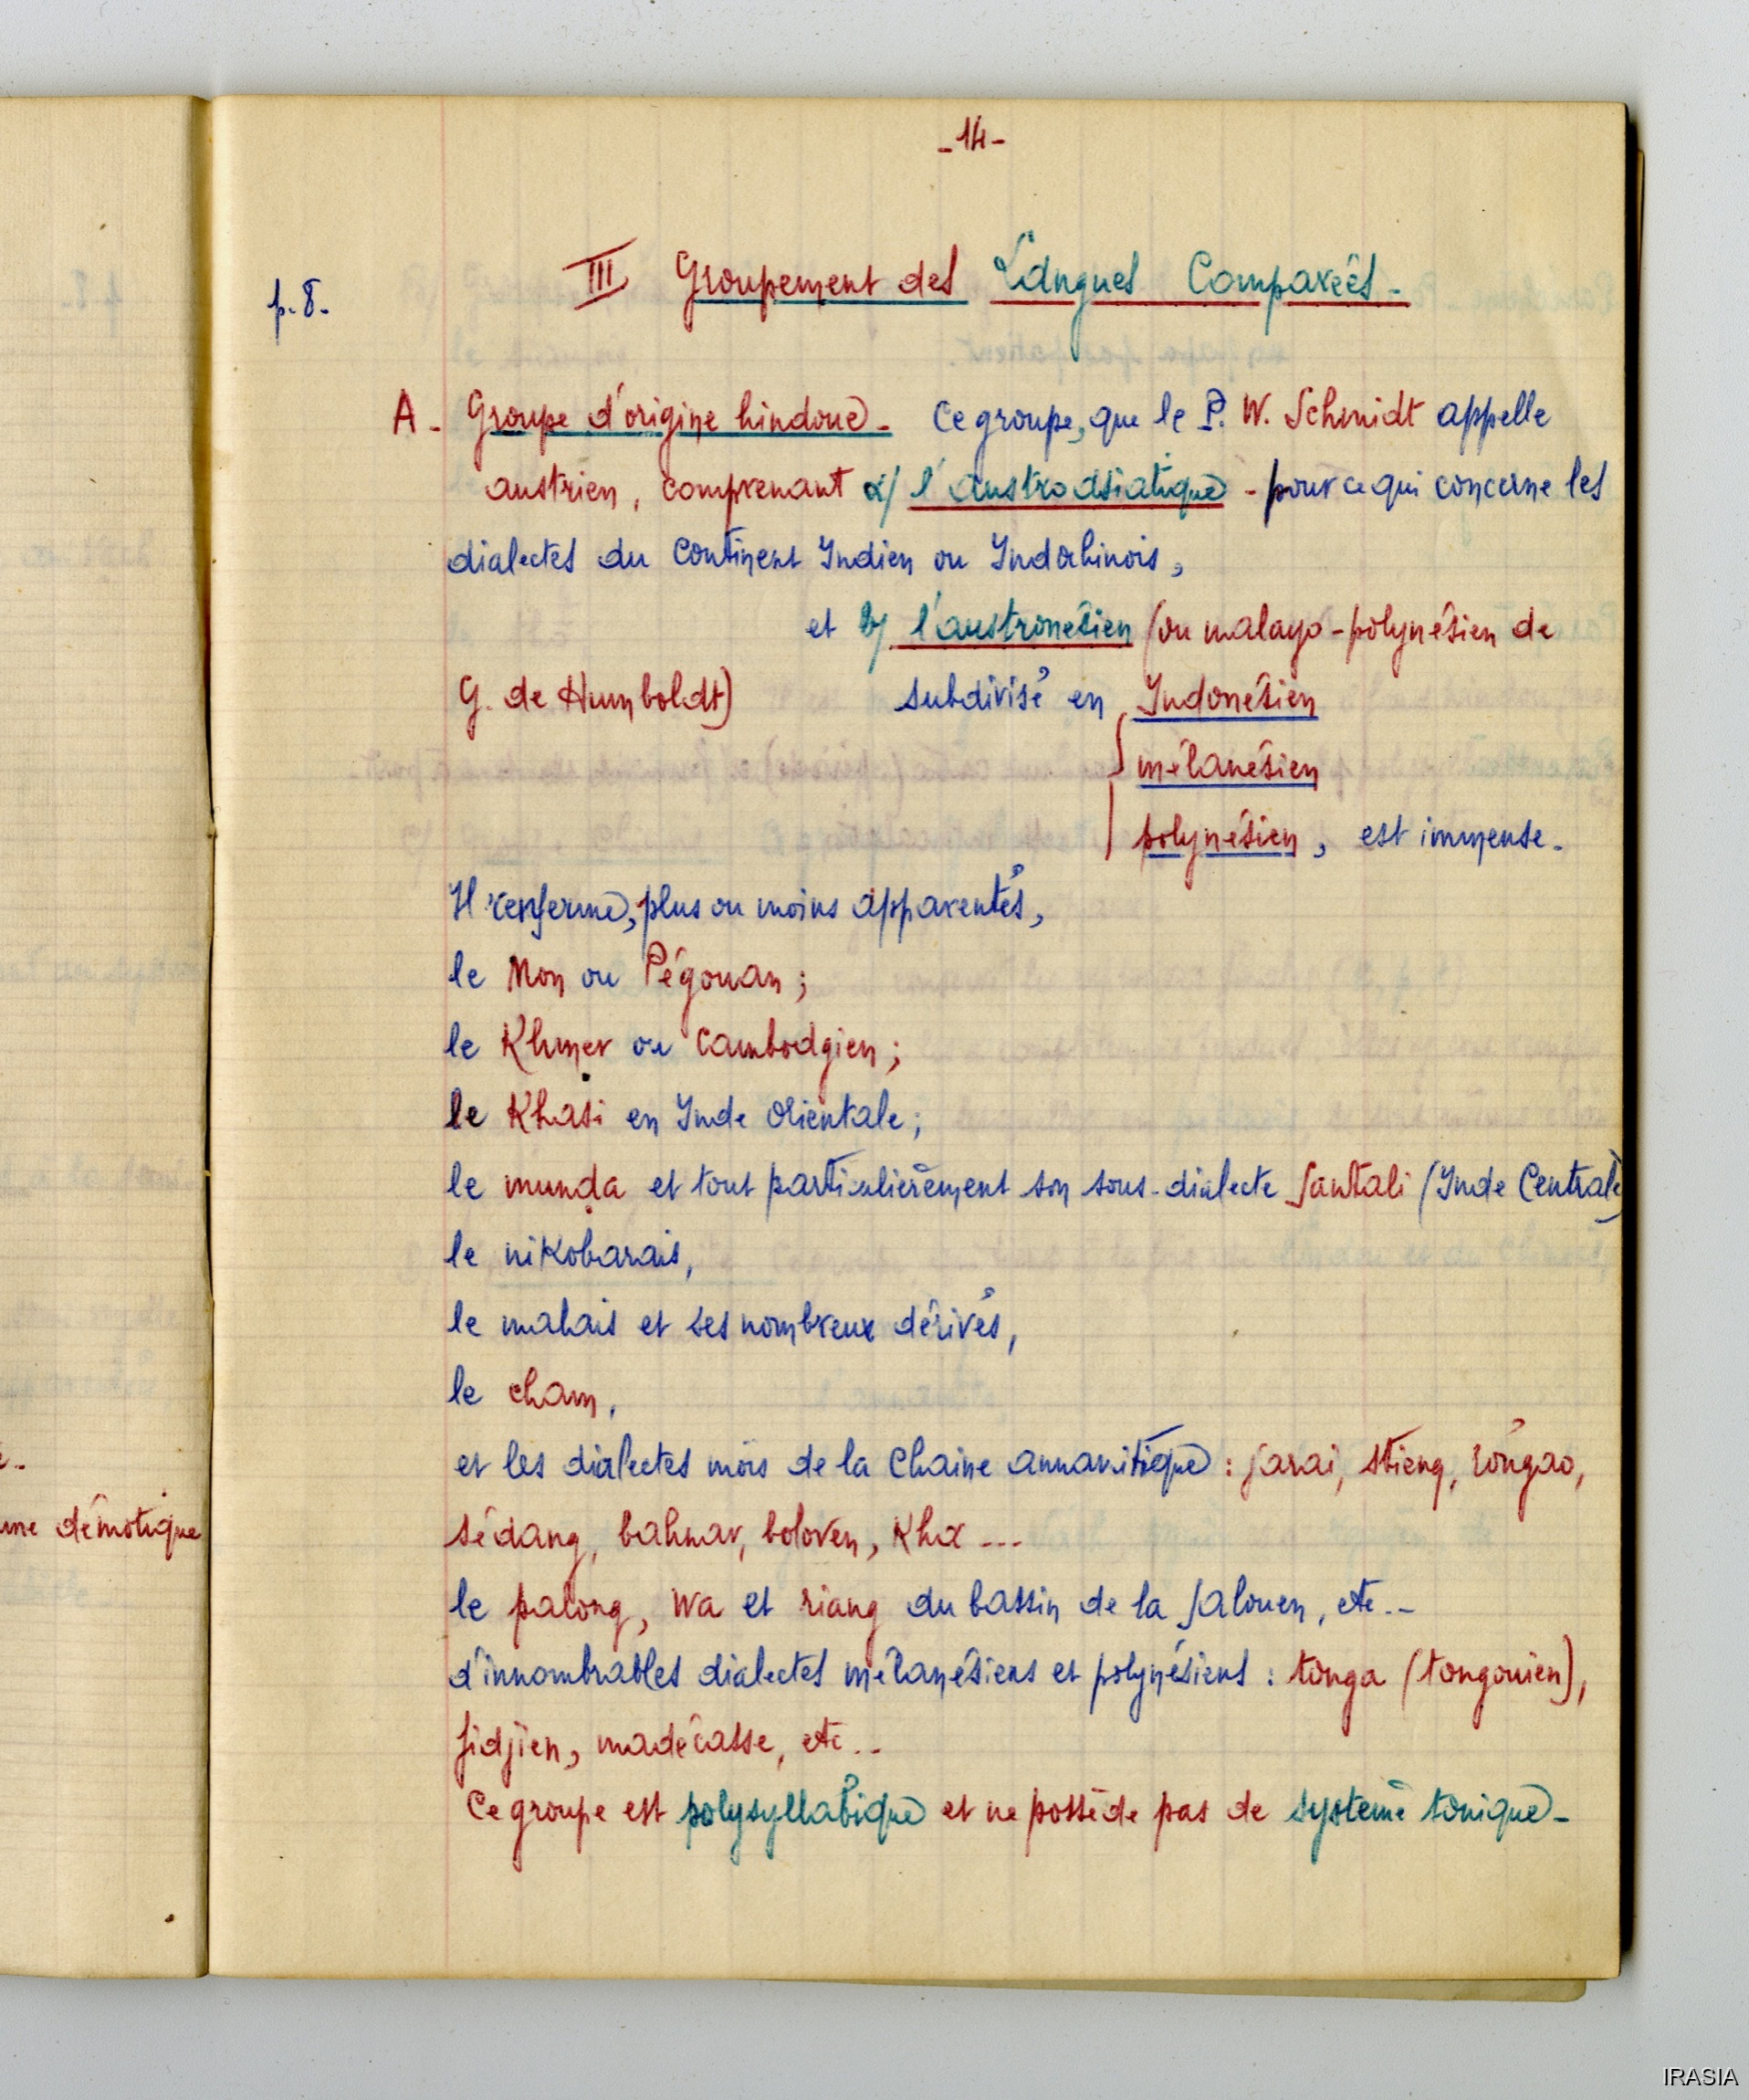 -14-
p.8.
III Groupement des Langues Comparées-
A- Groupe d'origine hindoue- Ce groupe, que le P. W. Schmidt appelle
austrien, comprenant a/ l'austroasiatique - pour ce qui concerne les
dialectes du Continent Indien ou Indochinois,
et b/ l'austronésien (ou malayo-polynésien de
G. de Humboldt) subdivisé en Indonésien
mélanésien
polynésien, est immense.
Il renferme, plus ou moins apparentés,
le Mon ou Pégouan;
le Khmer ou Cambodgien;
le Khasi en Inde Orientale;
le munda et tout particulièrement son sous-dialecte Santali (Inde Centrale)
le nikobarais,
le malais et ses nombreux dérivés,
le cham,
et les dialectes moïs de la Chaine annamitique : jarai, stieng, röngao,
sédang, bahnar, boloven, Kha ...
le palong, wa et riang du bassin de la Salouen, etc..
d'innombrables dialectes mélanésiens et polynésiens : tonga (tongouien),
fidjien, madécasse, etc..
Ce groupe est polysyllabique et ne possède pas de système tonique-
une démotique
IRASIA